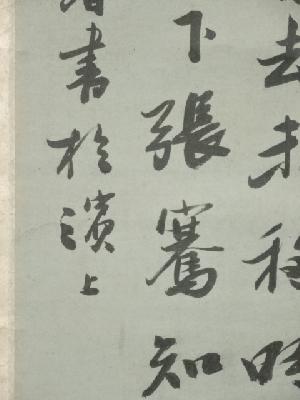 去未移時
下張騫知
書於濱上